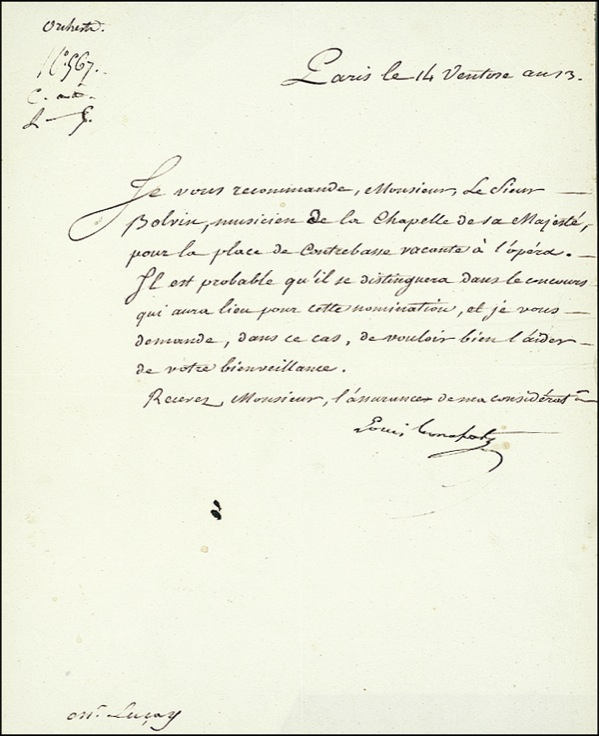 Orchestre.
N.º 567.
Paris le 14 Ventose an 13.
Je vous recommande, Monsieur, Le Sieur
Bolvin, musicien de la Chapelle de sa Majesté,
pour la place de Contrebasse vacante à l'opéra.
Il est probable qu'il se distinguera dans le concours
qui aura lieu pour cette nomination, et je vous
demande, dans ce cas, de vouloir bien l'aider
de votre bienveillance.
Recevez, Monsieur, l'assurance de ma considérat.on
Louis Bonaparte
Mr. Luçay